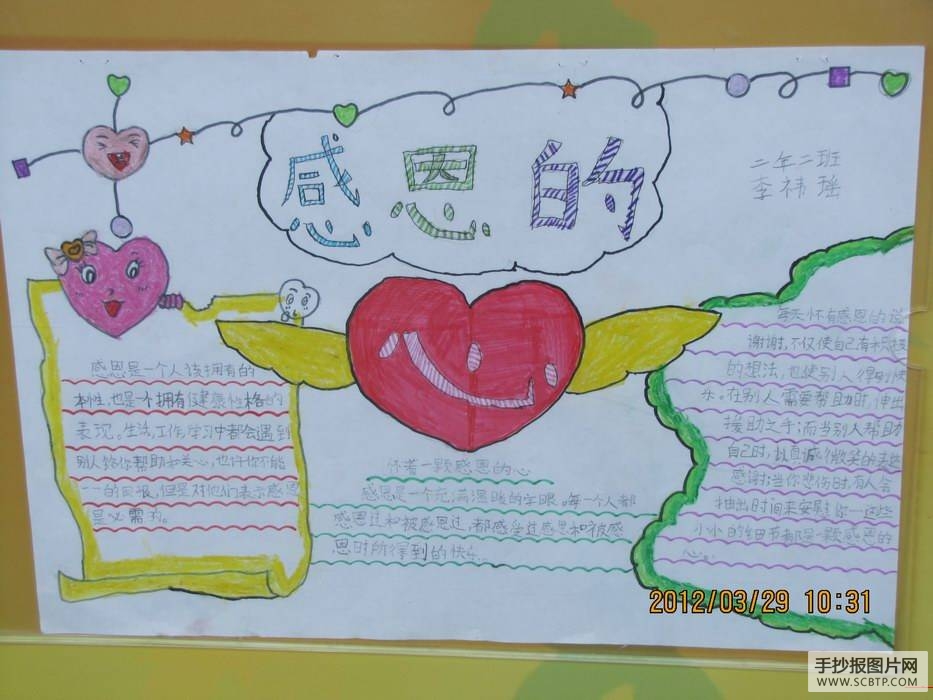 感恩的
二年二班
李祎瑶
感恩是一个人该拥有的
本性，也是一个拥有健康性格的
表现。生活，工作，学习中都会遇到
别人给你帮助和关心，也许你不能
一一的回报，但是对他们表示感恩
是必需的。
怀着一颗感恩的心
感恩是一个充满温暖的字眼。每一个人都
感恩过和被感恩过，都感受过感恩和被感
恩时所得到的快乐…
每天怀有感恩的说
谢谢，不仅使自己有积极
的想法，也使别人得到快
乐。在别人需要帮助时，伸出
援助之手；而当别人帮助
自己时，以真诚的微笑的表达
感谢；当你悲伤时，有人会
抽出时间来安慰你一这些
小小的细节都是一颗感恩的
心。
2012/03/29 10:31
手抄报图片网
WWW.SCBTP.COM